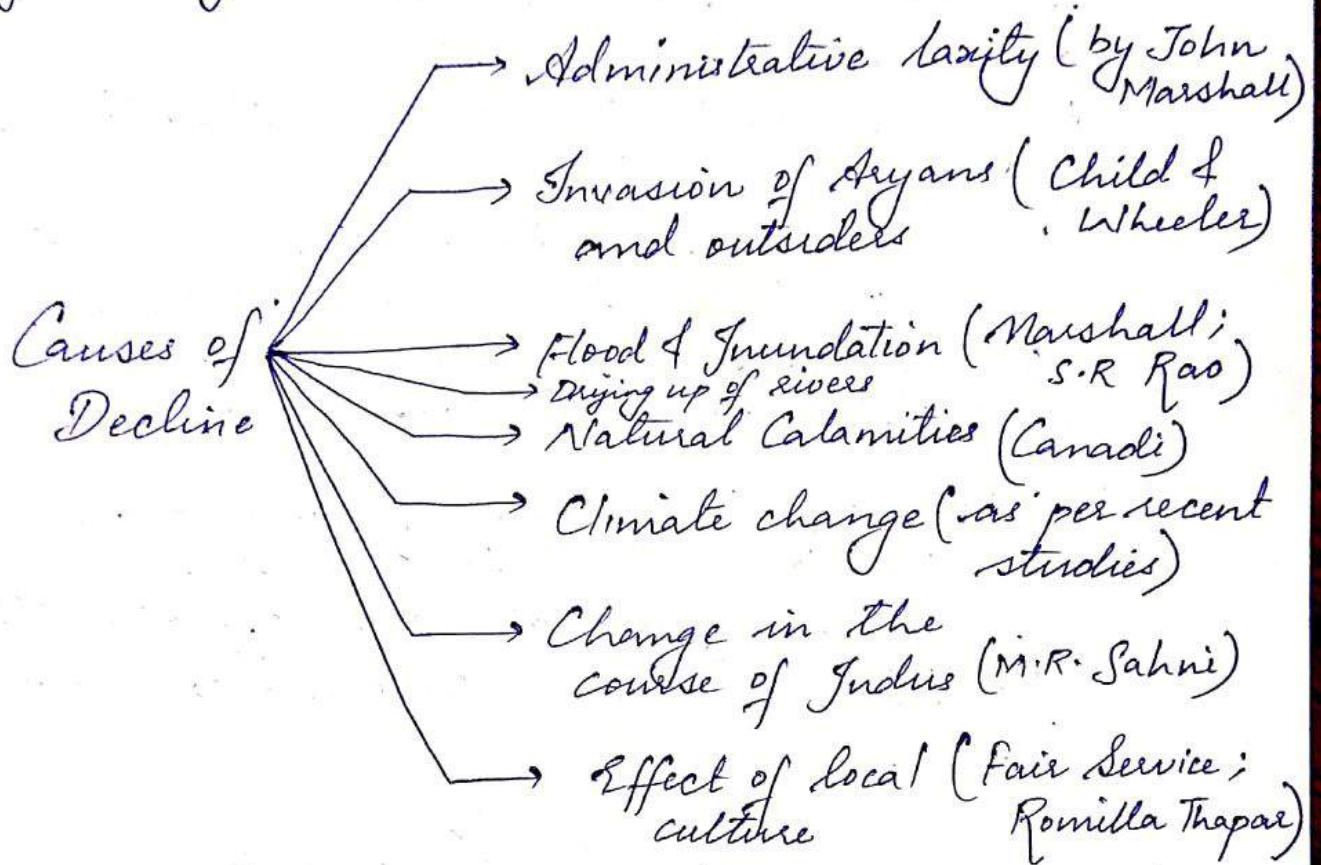 Administrative laxity (by John
Marshall)
Invasion of Aryans (Child &
and outsiders Wheeler)
Causes of
Decline
Flood & Inundation (Marshall;
S.R Rao)
Drying up of rivers
Natural Calamities (Canadi)
Climate change (as per recent
studies)
Change in the
course of Indus (M.R. Sahni)
Effect of local (Fair Service;
culture Romilla Thapar)